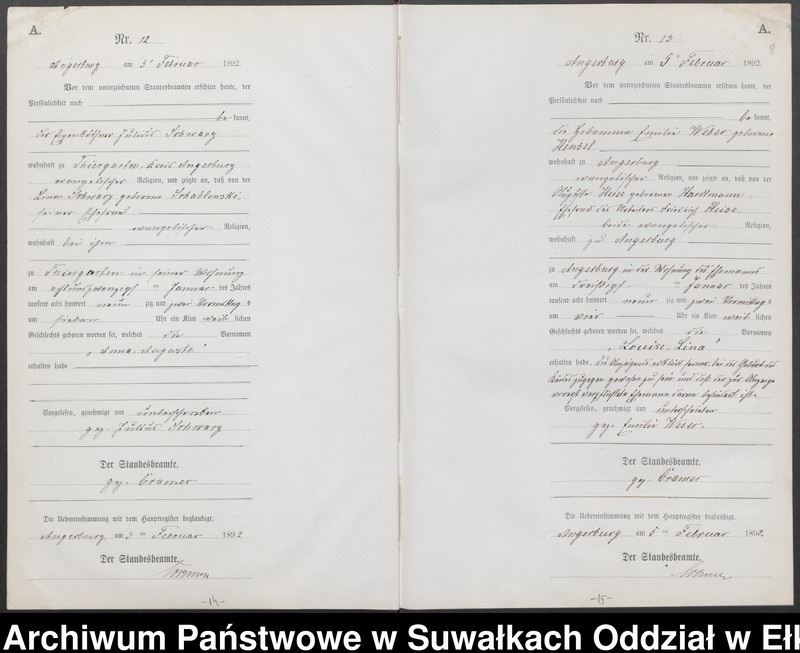 A.
Nr. 12
Angerburg am 3ᵗ Februar 1892.
Vor dem unterzeichneten Standesbeamten erschien heute, der
Persönlichkeit nach
be kannt,
der Eigenkäthner Julius Schwarz
wohnhaft zu Thiergarten, Kreis Angerburg
evangelischer Religion, und zeigte an, daß von der
Lina Schwarz geborene Schablowski,
seiner Ehefrau
evangelischer Religion,
wohnhaft bei ihm
zu Thiergarten in seiner Wohnung
am achtundzwanzigsten Januar des Jahres
tausend acht hundert neun zig und zwei Vormittags
um sieben Uhr ein Kind weib lichen
Geschlechts geboren worden sei, welches die Vornamen
„Anna, Auguste“
erhalten habe
Vorgelesen, genehmigt und unterschrieben
gez. Julius Schwarz
Der Standesbeamte.
gez. Cramer
Die Uebereinstimmung mit dem Hauptregister beglaubigt.
Angerburg am 3 ten Februar 1892
Der Standesbeamte.
Cramer
-14-
A.
8
Nr. 13
Angerburg am 5ᵗ Februar 1892.
Vor dem unterzeichneten Standesbeamten erschien heute, der
Persönlichkeit nach
be kannt,
die Hebamme Emilie Weber geborene
Hensel
wohnhaft zu Angerburg
evangelischer Religion, und zeigte an, daß von der
Heise geborenen Haselmann
Ehefrau des Arbeiters Friedrich Heise,
beide evangelischer Religion,
wohnhaft zu Angerburg
zu Angerburg in der Wohnung des Ehemannes
am dreißigsten Januar des Jahres
tausend acht hundert neun zig und zwei Vormittags
um vier Uhr ein Kind weib lichen
Geschlechts geboren worden sei, welches die Vornamen
„Louise, Lina“
erhalten habe. Die Anzeigende erklärt ferner, daß sie bei der Geburt des
Kindes zugegen gewesen zu sein und daß der zur Anzeige
verpflichtete Ehemann daran behindert ist.
Vorgelesen, genehmigt und unterschrieben
gez. Emilie Weber.
Der Standesbeamte.
gez. Cramer
Die Uebereinstimmung mit dem Hauptregister beglaubigt.
Angerburg am 5 ten Februar 1892.
Der Standesbeamte.
Cramer
-15-
Archiwum Państwowe w Suwałkach Oddział w Ełk